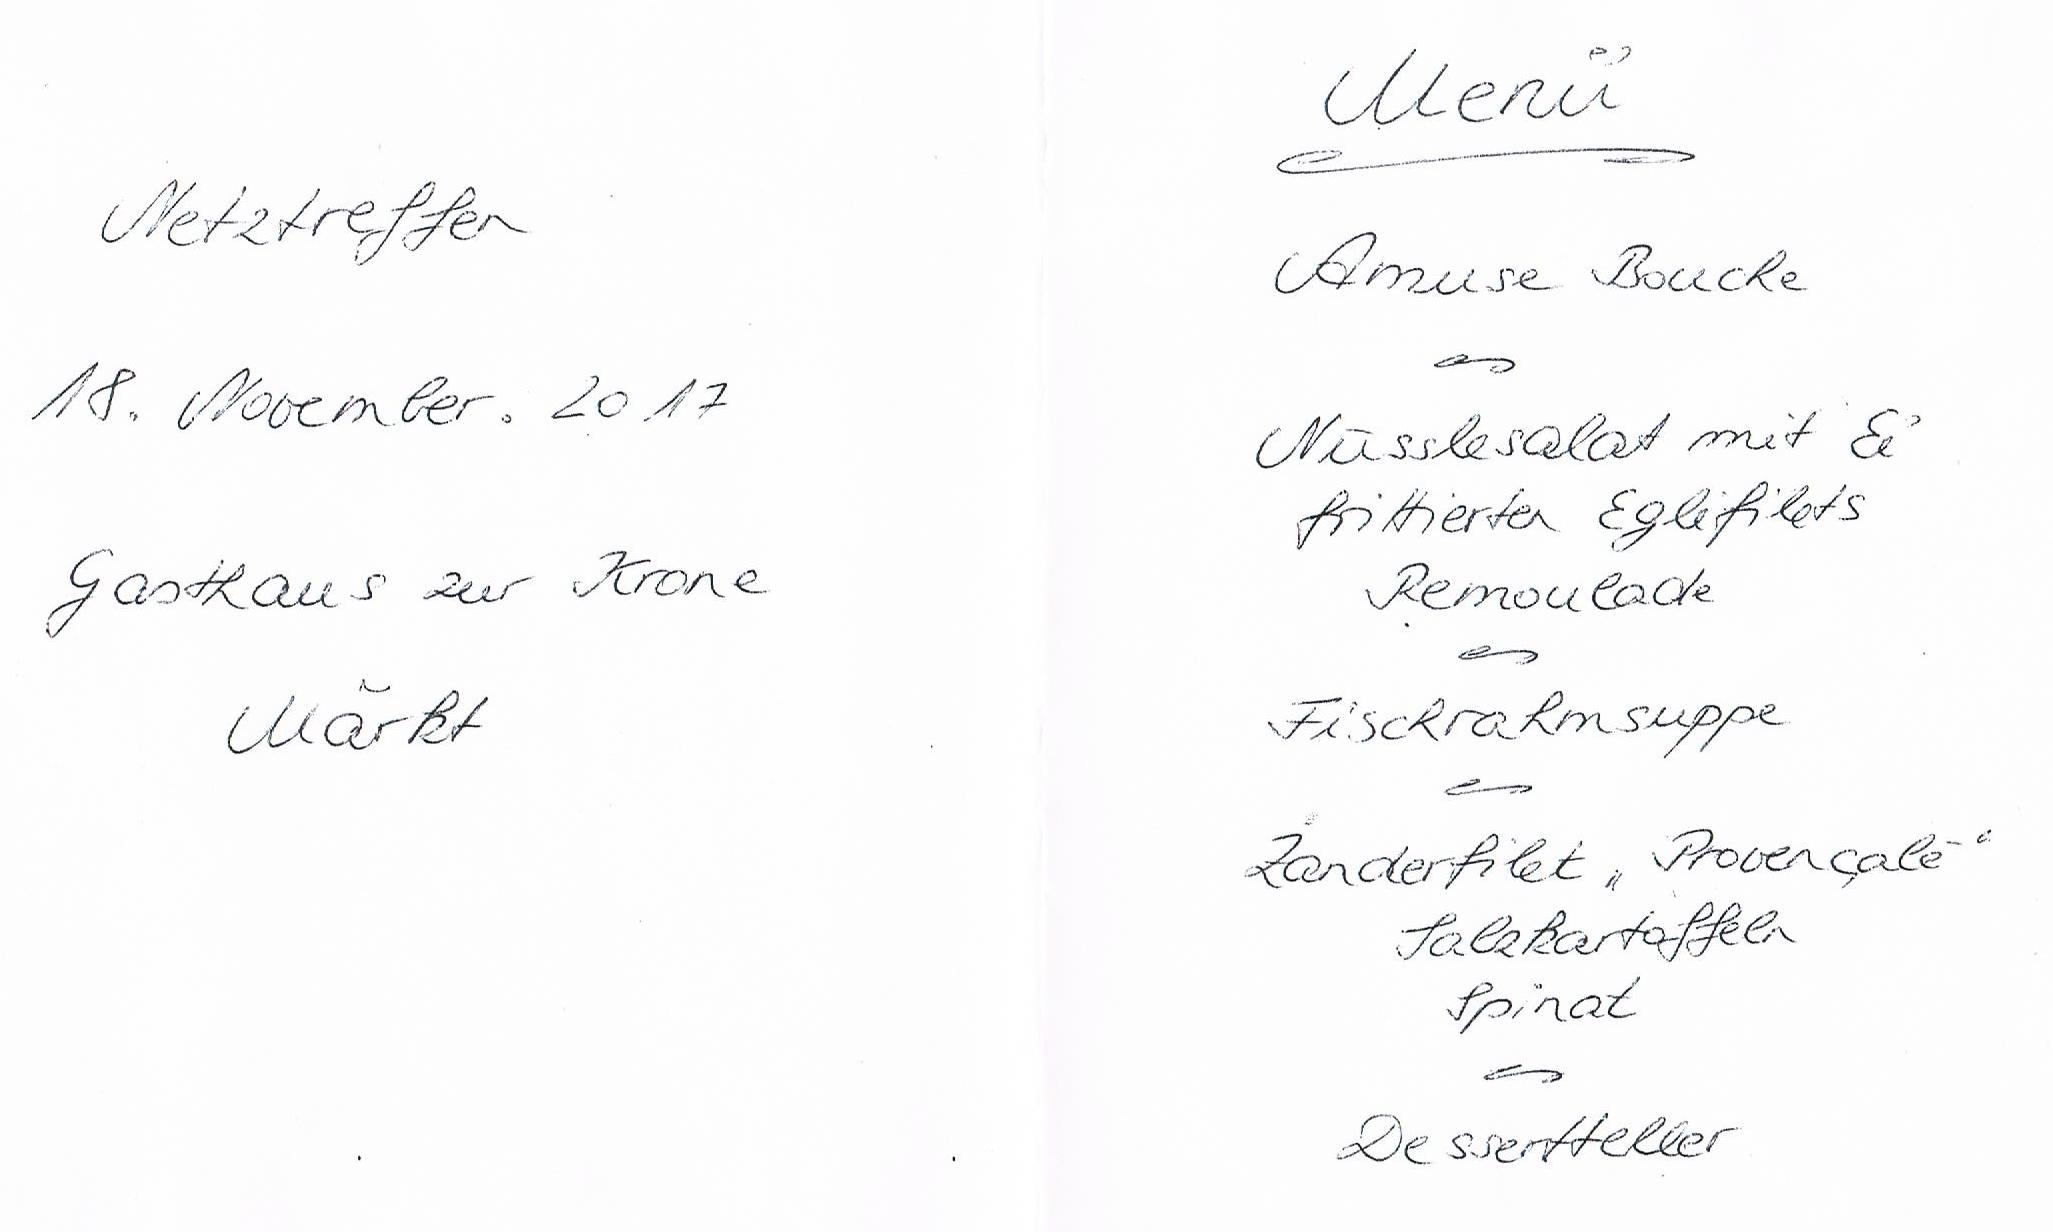 Netztreffen
18. November. 2017
Gasthaus zur Krone
Märkt
Menü
Amuse Bouche
Nüsslesalat mit Ei
frittierten Eglifilets
Remoulade
Fischrahmsuppe
Zanderfilet „Provençale“
Salzkartoffeln
Spinat
Dessertteller